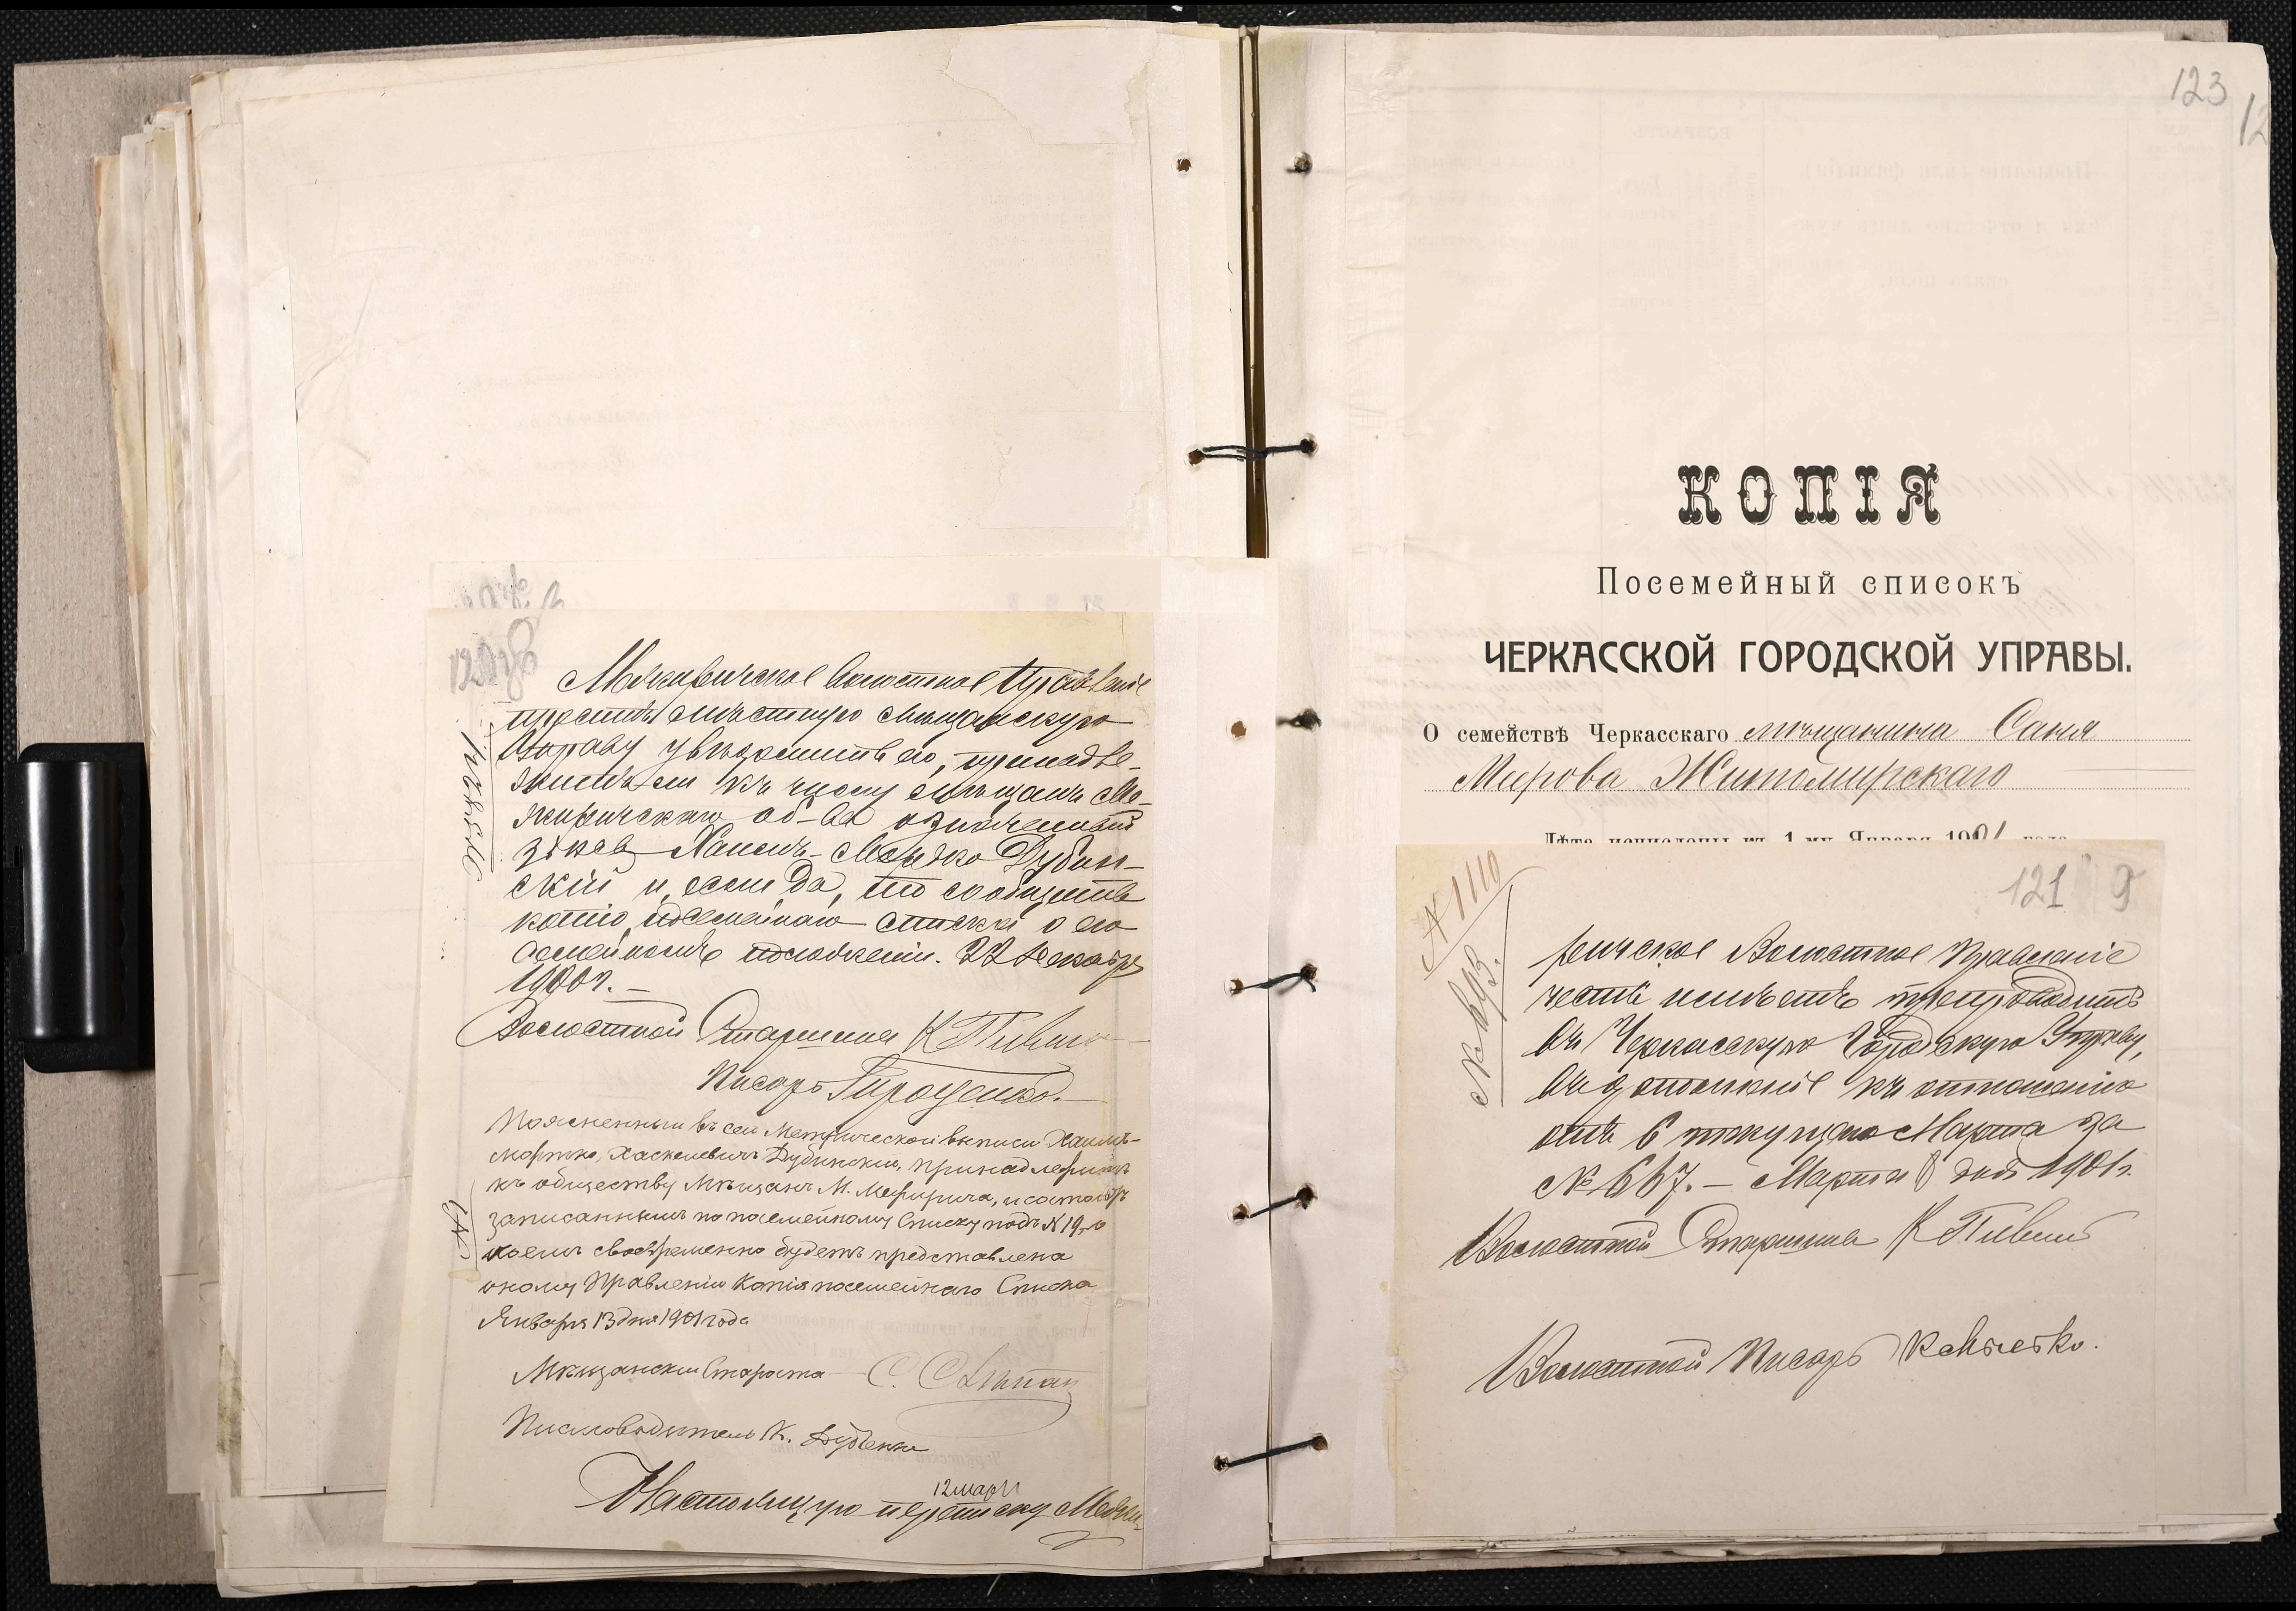 Межиричское Волостное Правленіе
проситъ мѣстную мѣщанскую
Управу увѣдомить его, принадле-
житъ ли къ числу мѣщанъ Ме-
жиричскаго об-ва означенный
здѣсь Хаимъ-Мордко Дубин-
скій и, если да, то сообщить
копію посемейнаго списка о его
семейномъ положеніи. 22 Декабря
1900 г. —
Волостной Старшина К Пивень
Писарь
Поясненный въ сей Метрической выписи Хаимъ-
Мордко Хаскелевичъ Дубинский, принадлежитъ
къ обществу Мѣщанъ М. Межирича, и состоитъ
записаннымъ по посемейному Списку подъ № 19, о
коемъ своевременно будетъ представлена
оному Правленію Копія посемейнаго Списка
Января 13 дня 1901 года
Мѣщанский Староста С.
Письмоводитель К.
12 мар
Настоящую переписку Межи-
123
12
КОПІЯ
Посемейный списокъ
ЧЕРКАССКОЙ ГОРОДСКОЙ УПРАВЫ.
О семействѣ Черкасскаго мѣщанина Саня
Мирова Житомирскаго
Лѣта исчислены къ 1-му Января 1901 года
№ 1110
121 9
ричское Волостное Правленіе
честь имѣетъ препроводить
въ Черкасскую Городскую Управу,
въ дополненіе къ отношенію
отъ 6 текущаго Марта за
№ 667. — Марта 8 дня 1901 г.
Волостной Старшина К Пивень
Волостной Писарь